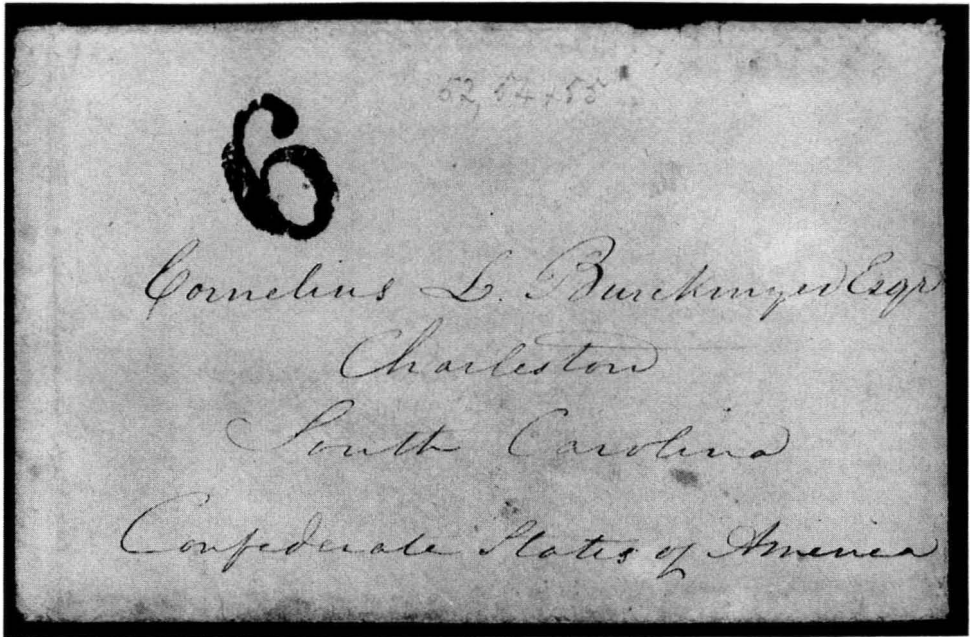 52, 54 + 55
6
Cornelius L. Burckmyer Esqr
Charleston
South Carolina
Confederate States of America